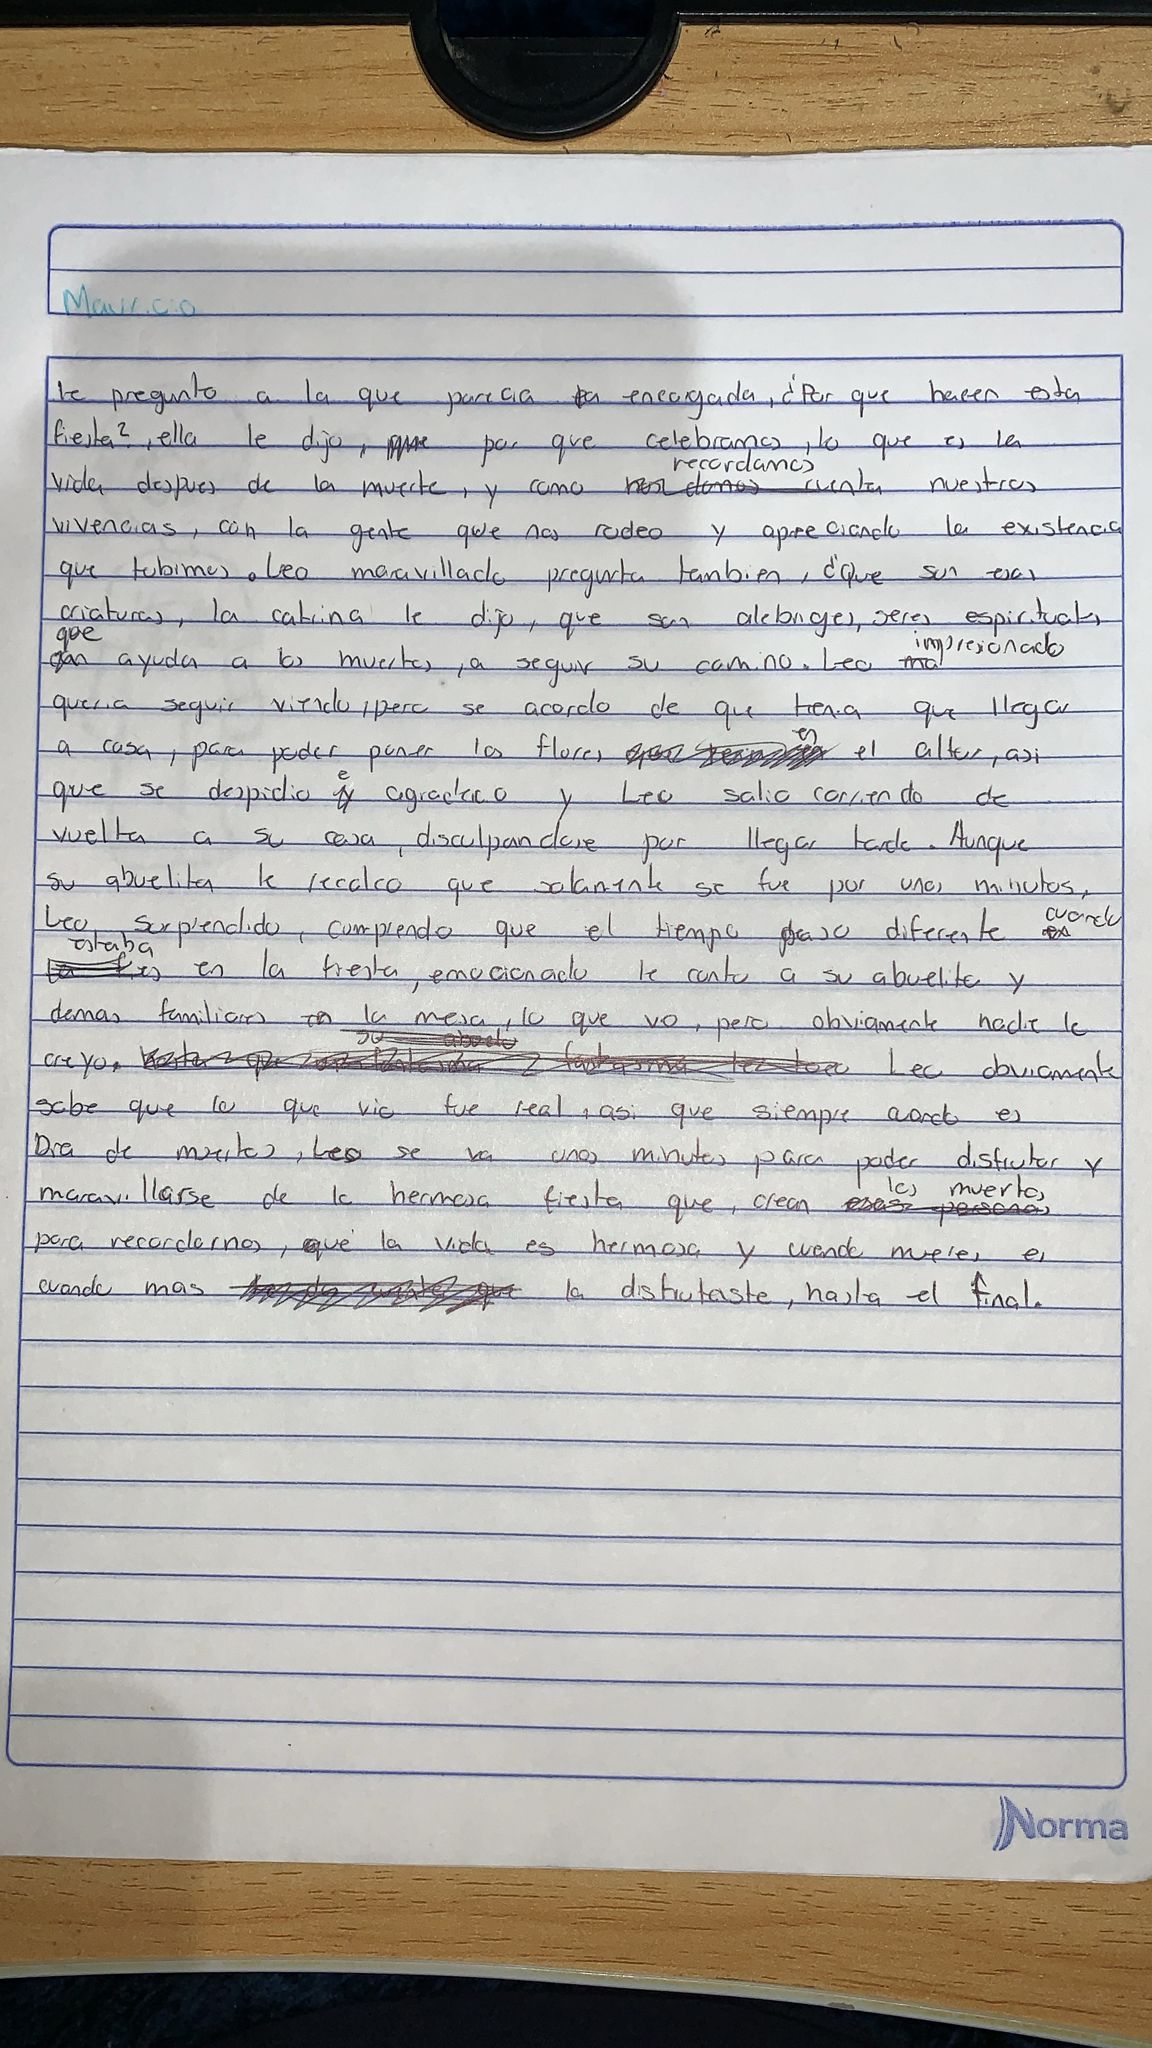 Mauricio
le pregunto a la que parecia la encargada, ¿Por que hacen esta
fiesta?, ella le dijo, por que celebramos, lo que es la
recordamos
vida despues de la muerte, y como nuestras
vivencias, con la gente que nos rodeo y apreciando la existencia
que tubimos. Leo maravillado pregunta tambien, ¿Que son esas
criaturas, la catrina le dijo, que son alebriges, seres espirituales
que impresionado
ayuda a los muertos, a seguir su camino. Leo
queria seguir viendo, pero se acordo de que tenia que llegar
en
a casa, para poder poner las flores el altar, asi
e
que se despidio agradecio y Leo salio corriendo de
vuelta a su casa, disculpandose por llegar tarde. Aunque
su abuelita le recalco que solamente se fue por unos minutos,
cuando
Leo, sorprendido, comprendo que el tiempo paso diferente
estaba
en la fiesta, emocionado le conto a su abuelita y
demas familiares en la mesa, lo que vo, pero obviamente nadie le
creyo. Leo obviamente
sabe que lo que vio fue real, asi que siempre cuando es
Dia de muertos, Leo se va unos minutos para poder disfrutar y
los muertos
maravillarse de la hermosa fiesta que, crean
para recordarnos, que la vida es hermosa y cuando mueres, es
cuando mas la disfrutaste, hasta el final.
Norma